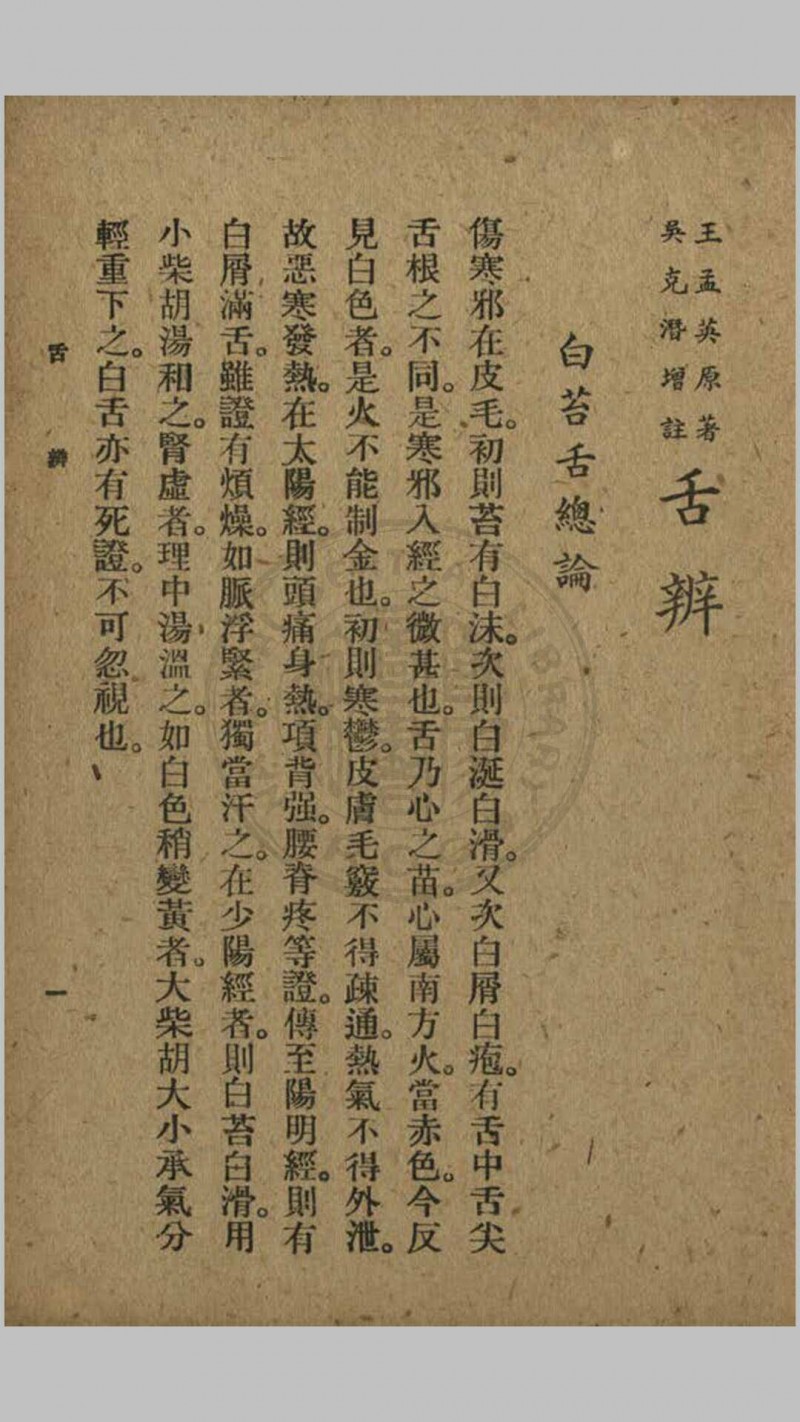 王孟英原著
吳克潛增註
舌辨
白苔舌總論
傷寒邪在皮毛。初則苔有白沫。次則白涎白滑。又次白屑白疱。有舌中舌尖
舌根之不同。是寒邪入經之微甚也。舌乃心之苗。心屬南方火。當赤色。今反
見白色者。是火不能制金也。初則寒鬱。皮膚毛竅不得疎通。熱氣不得外泄。
故惡寒發熱。在太陽經。則頭痛身熱。項背强。腰脊疼等證。傳至陽明經。則有
白屑滿舌。雖證有煩燥。如脈浮緊者。獨當汗之。在少陽經者。則白苔白滑。用
小柴胡湯和之。腎虛者。理中湯溫之。如白色稍變黃者。大柴胡大小承氣分
輕重下之。白舌亦有死證。不可忽視也。
舌辨
一